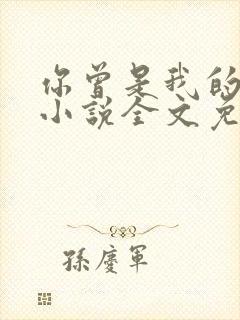 你曾是我的
小說全文免
孫慶軍